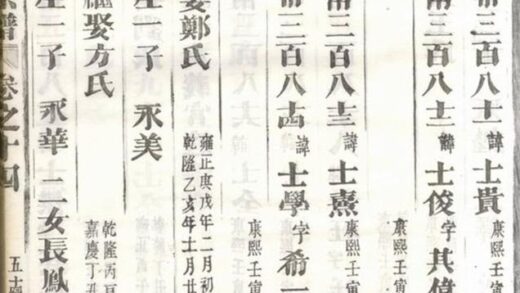 康熙壬寅
三百八十一諱士貴
三百八十二諱士俊字其偉
康熙壬
三百八十三諱士熹
康熙壬寅
三百八十四諱士學字希一
康熙壬寅
娶鄭氏
雍正庚戌年二月初
乾隆乙亥年十月廿
生一子永美
繼娶方氏
乾隆丙
嘉慶丁
生一子永華二女長鳳
五十
譜卷之十四